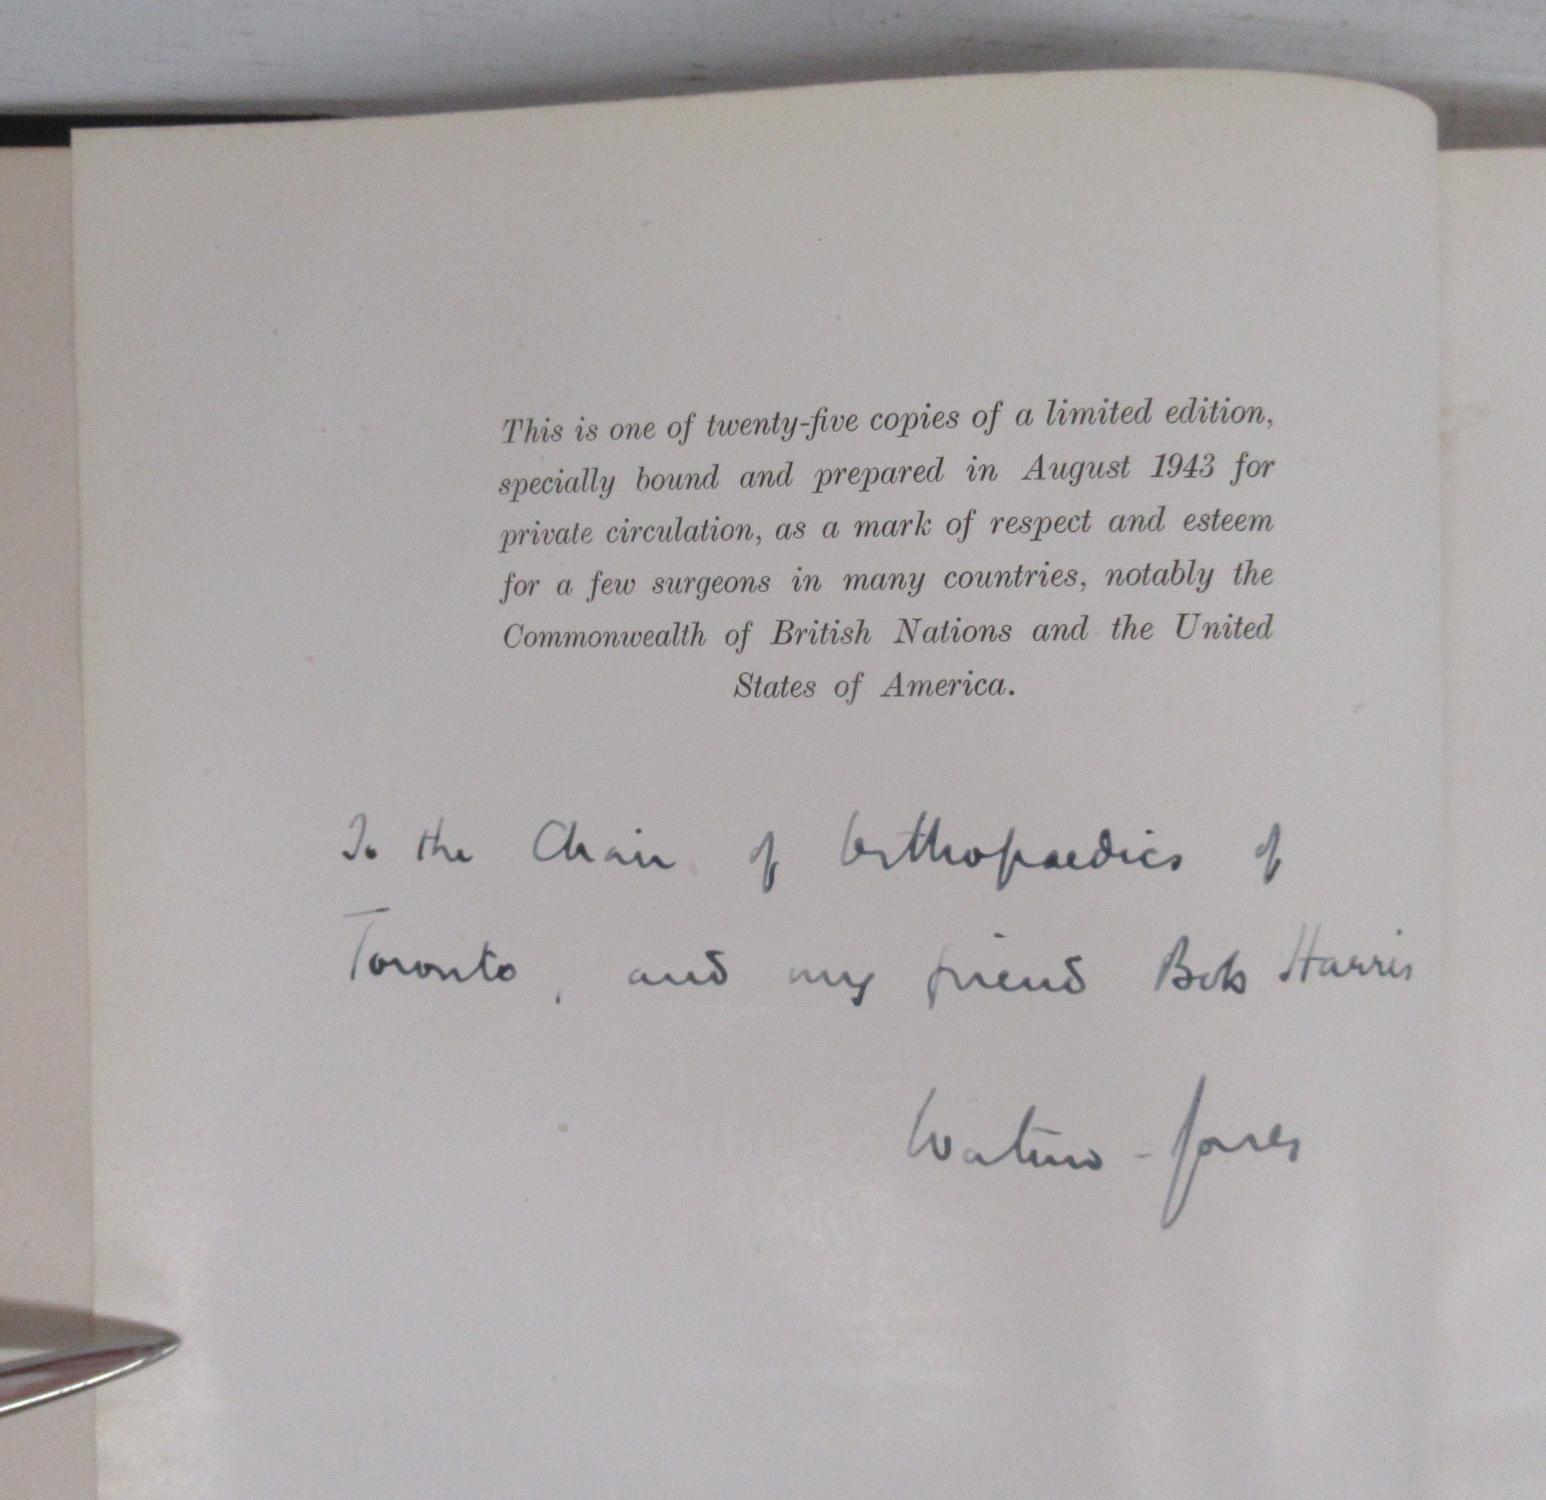 This is one of twenty-five copies of a limited edition,
specially bound and prepared in August 1943 for
private circulation, as a mark of respect and esteem
for a few surgeons in many countries, notably the
Commonwealth of British Nations and the United
States of America.
To the Chair of Orthopaedics of
Toronto, and my friend Bob Harris
Watson-Jones